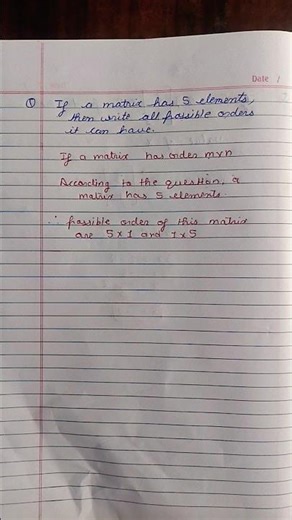 Date /
Q If a matrix has 5 elements,
then write all possible orders
it can have.
If a matrix has order mxn
According to the question, a
matrix has 5 elements.
∴ possible order of this matrix
are 5x1 and 1x5